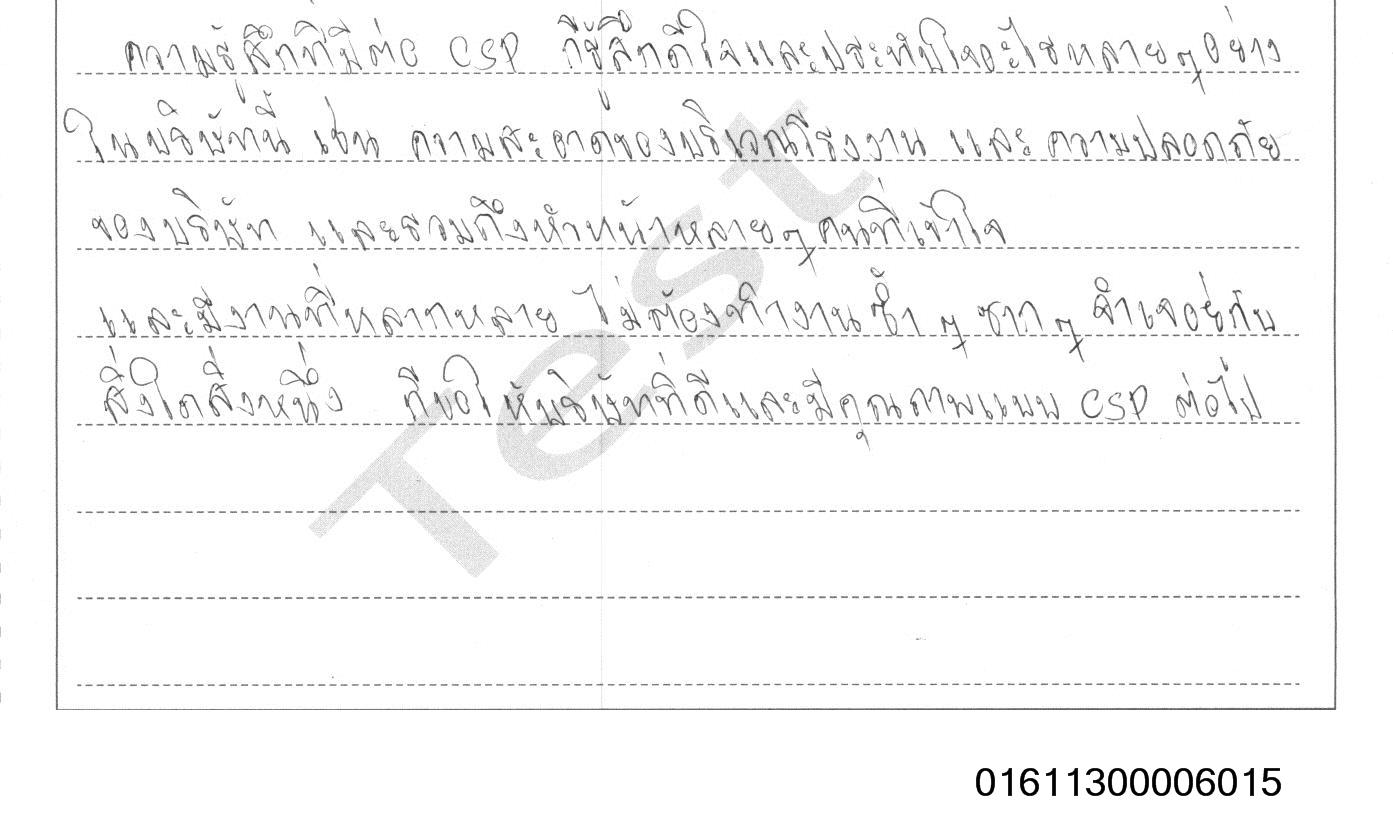 ความรู้สึกที่มีต่อ CSP ก็รู้สึกดีใจและประทับใจอะไรหลายๆอย่าง
ในบริษัทนี้ เช่น ความสะอาดของบริเวณโรงงาน และ ความปลอดภัย
ของบริษัท และรวมถึงหัวหน้าหลายๆคนที่เข้าใจ
และมีงานที่หลากหลาย ไม่ต้องทำงานซ้ำ ๆ ซาก ๆ จำเจอยู่กับ
สิ่งใดสิ่งหนึ่ง ก็ขอให้บริษัทที่ดีและมีคุณภาพแบบ CSP ต่อไป
Test
01611300006015